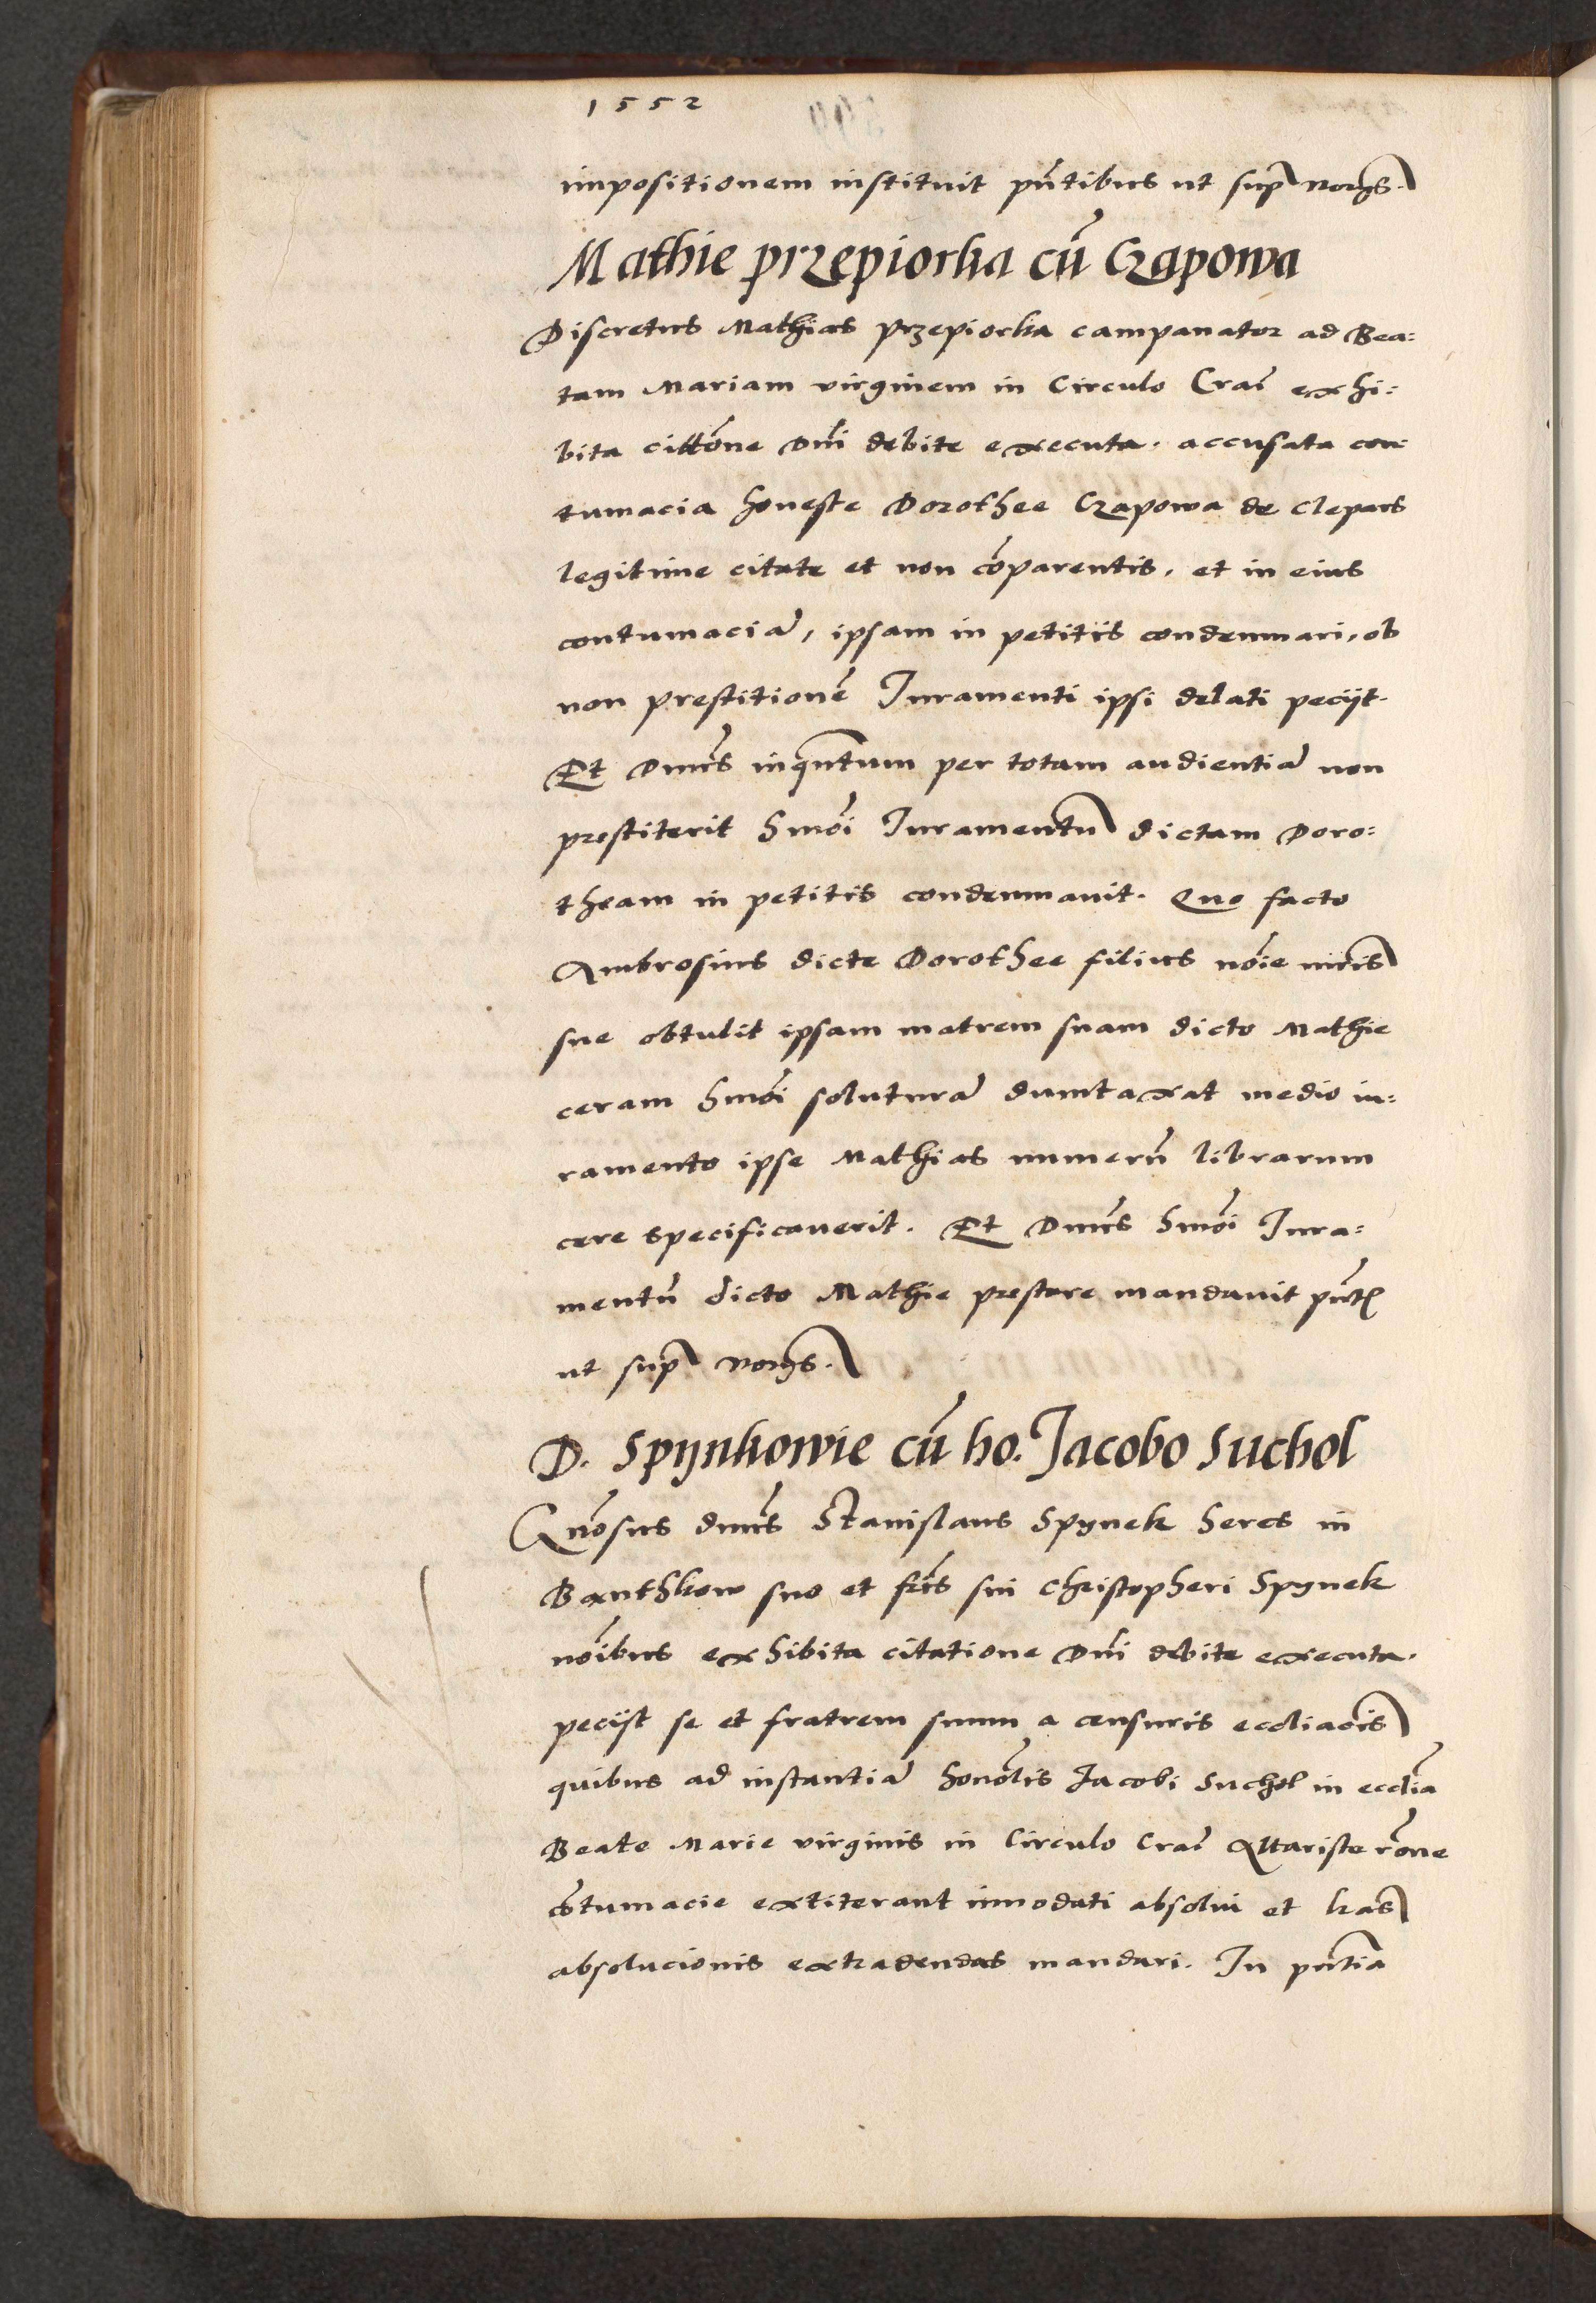 1552
impositionem instituit pñtibus ut sup Norijs.
Mathie przepiorka cū Czapowa
Discretus Mathias przepiorka campanator ad Bea:
tam Mariam virginem in Circulo Craĩ exhi:
bita cittõne Dñi debite executa. accusata con
tumacia honeste Dorothee Czapowa de Clepars
legitime citate et non cõparentis, et in eius
contumaciã, ipsam in petitis condemnari, ob
non prestitionẽ Juramenti ipsi delati pecijt.
Et Dnus inqntum per totam audientiã non
prestiterit hmõi Juramentũ dictam Doro:
theam in petitis condemnavit. Quo facto
Ambrosius dicte Dorothee filius nõie mris
sue obtulit ipsam matrem suam dicto Mathie
ceram hmõi soluturã dumtaxat medio iu:
ramento ipse Mathias numerũ librarum
cere specificaverit. Et Dnus hmõi Jura:
mentũ dicto Mathie prestare mandavit pñt
ut sup Norijs.
D. Spÿnkowie cū ho. Jacobo Suchol
Gnõsus dnus Stanislaus Spÿnek heres in
Banthkow suo et frĩs sui Christopheri Spÿnek
nõibus exhibita citatione Dñi debite executa.
pecijt se et fratrem suum a censuris eccliacis
quibus ad instantiã honolis Jacobi Suchol in ecclĩa
Beate Marie virginis in Circulo Craĩ Altariste rõne
cõtumacie extiterant innodati absolvi et lras
absolucionis extradendas mandari. In pñtia